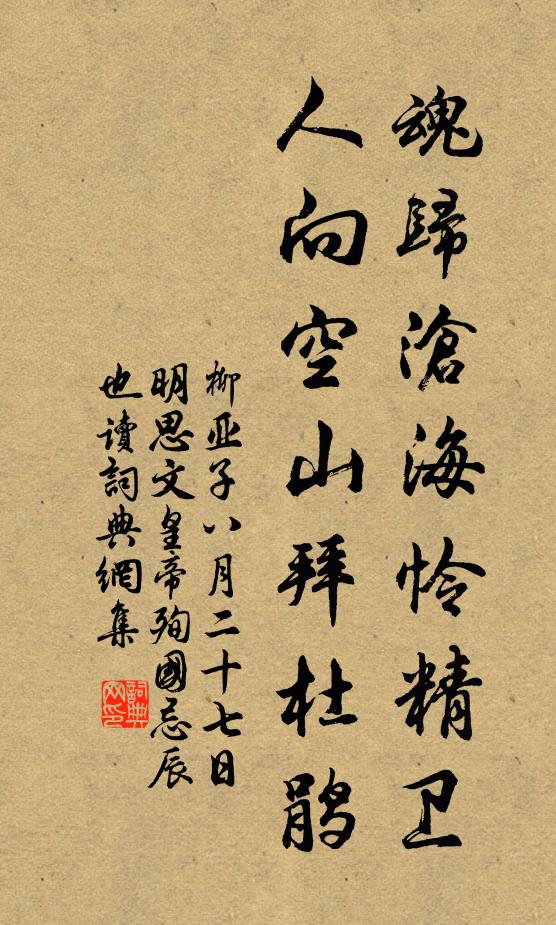 魂歸滄海怜精卫
人向空山拜杜鹃
柳亚子八月二十七日
明思文皇帝殉國忌辰
也讀詞典網集
詞典
网印